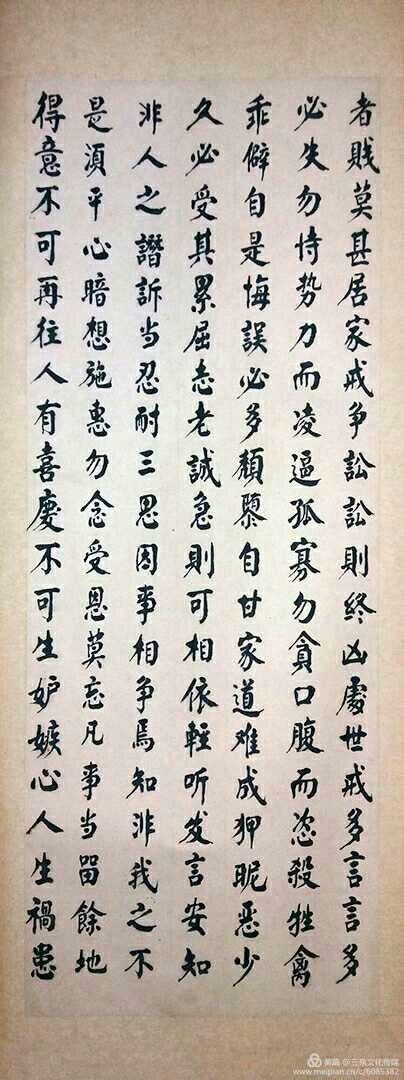 者贱莫甚居家戒争讼讼则终凶处世戒多言言多
必失勿恃势力而凌逼孤寡勿贪口腹而恣杀牲禽
乖僻自是悔误必多颓隳自甘家道难成狎昵恶少
久必受其累屈志老誠急则可相依轻听发言安知
非人之譖訴当忍耐三思因事相争焉知非我之不
是須平心暗想施惠勿念受恩莫忘凡事当留餘地
得意不可再往人有喜慶不可生妒嫉心人生禍患
美篇 @三泉文化传媒
www.meipian.cn/c/6085382